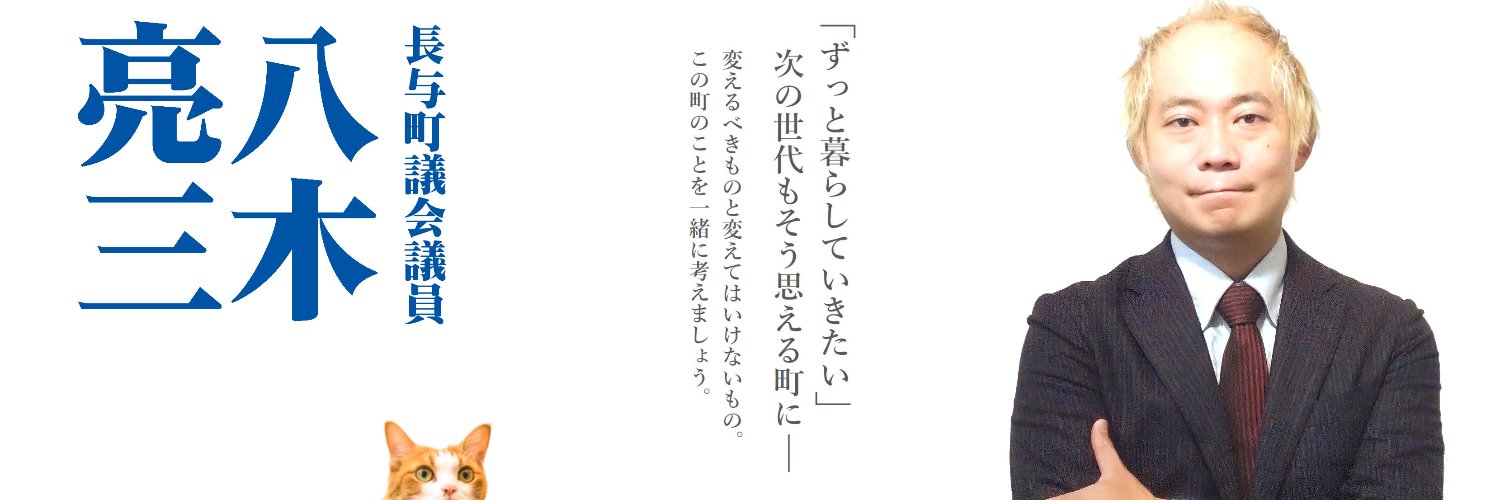 「ずっと暮らしていきたい」
次の世代もそう思える町に――
変えるべきものと変えてはいけないもの。
この町のことを一緒に考えましょう。
長与町議会議員
八木
亮三